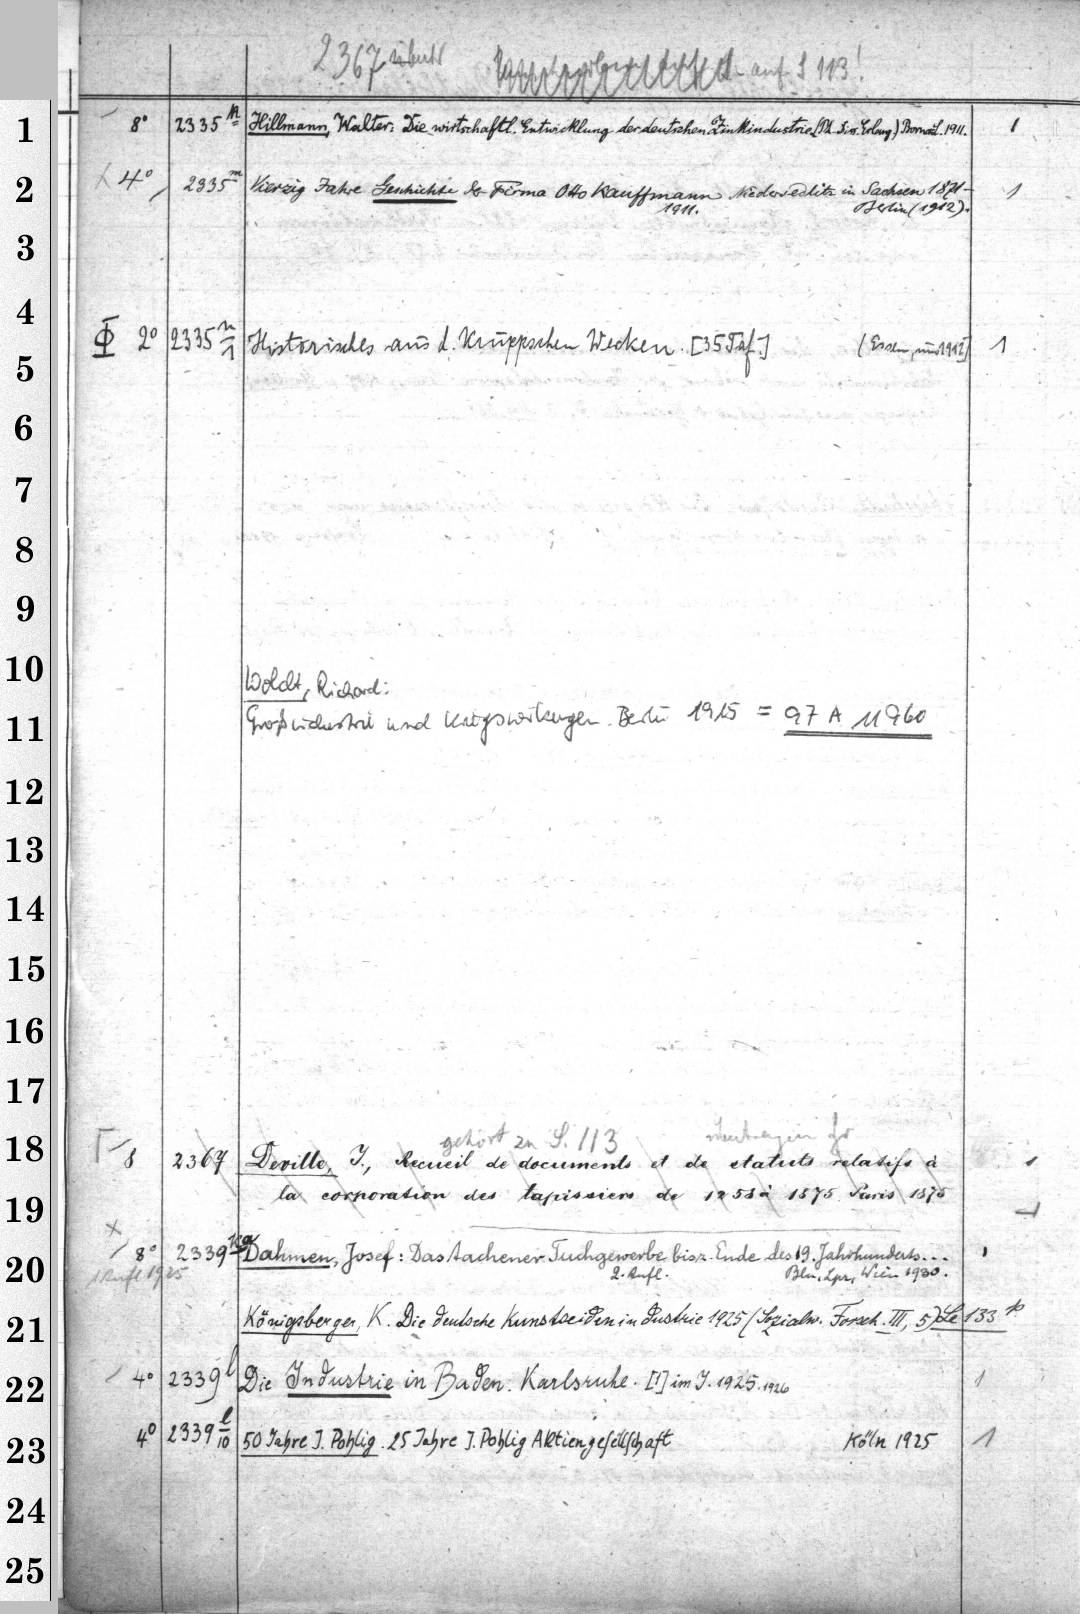 2367 auf S 113!
1 8° 2335 k Hillmann, Walter: Die wirtschaftl. Entwicklung der deutschen Zinkindustrie. (Ph. Diss. Erlang.) Borna-L. 1911. 1
2 4° 2335 m Vierzig Jahre Geschichte der Firma Otto Kauffmann Niedersedlitz in Sachsen 1871- 1
1911. Berlin (1912).
3
4
2° 2335 n/1 Historisches aus d. Kruppschen Werken. [35 Taf.] (Essen, um 1912) 1
5
6
7
8
9
10 Woldt, Richard:
11 Großindustrie und Kriegswirkungen. Berlin 1915 = 97 A 11960
12
13
14
15
16
17
gehört zu S. 113
18 8 2367 Deville, J., Recueil de documents et de statuts relatifs à 1
19 la corporation des tapissiers de 1258 à 1875 Paris 1875
8° 2339 Dahmen, Josef: Das Aachener Tuchgewerbe bis z. Ende des 19. Jahrhunderts... 1
20 1. Aufl. 1925 2. Aufl. Bln, Lpz, Wien 1930.
21 Königsberger, K. Die deutsche Kunstseidenindustrie 1925 (Sozialw. Forsch. III, 5) 133
22 4° 2339 l Die Industrie in Baden. Karlsruhe. [1] im J. 1925. 1926 1
23 4° 2339 l/10 50 Jahre J. Pohlig. 25 Jahre J. Pohlig Aktiengesellschaft Köln 1925 1
24
25